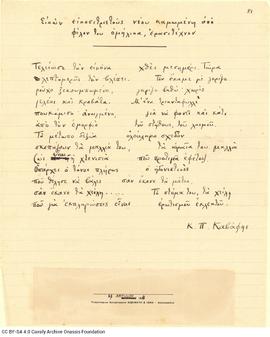 81
Εἰκὼν εἰκοσιτριετοῦς νέου καμωμένη ἀπὸ
φίλον του ὁμήλικα, ἐρασιτέχνην
Τελείωσε τὴν εἰκόνα χθὲς μεσημέρι. Τώρα
λεπτομερῶς τὴν βλέπει. Τὸν ἔκαμε μὲ γκρίζο
ροῦχο ξεκουμπωμένο, γκρίζο βαθύ· χωρὶς
γελέκι καὶ κραβάτα. Μ' ἕνα τριανταφυλλὶ
πουκάμισο· ἀνοιγμένο, γιὰ νὰ φανεῖ καὶ κάτι
ἀπὸ τὴν ἐμορφιὰ τοῦ στήθους, τοῦ λαιμοῦ.
Τὸ μέτωπο δεξιὰ ὁλόκληρο σχεδὸν
σκεπάζουν τὰ μαλλιά του, τὰ ὡραῖα του μαλλιὰ
(ὡς εἶναι ἡ χτενισιὰ ποὺ προτιμᾶ ἐφέτος).
Ὑπάρχει ὁ τόνος πλήρως ὁ ἡδονιστικὸς
ποὺ θέλησε νὰ βάλει σὰν ἔκανε τὰ μάτια,
σὰν ἔκανε τὰ χείλη.... Τὸ στόμα του, τὰ χείλη
ποὺ γιὰ ἐκπληρώσεις εἶναι ἐρωτισμοῦ ἐκλεκτοῦ.
Κ. Π. Καβάφης
CC BY-SA 4.0 Cavafy Archive Onassis Foundation